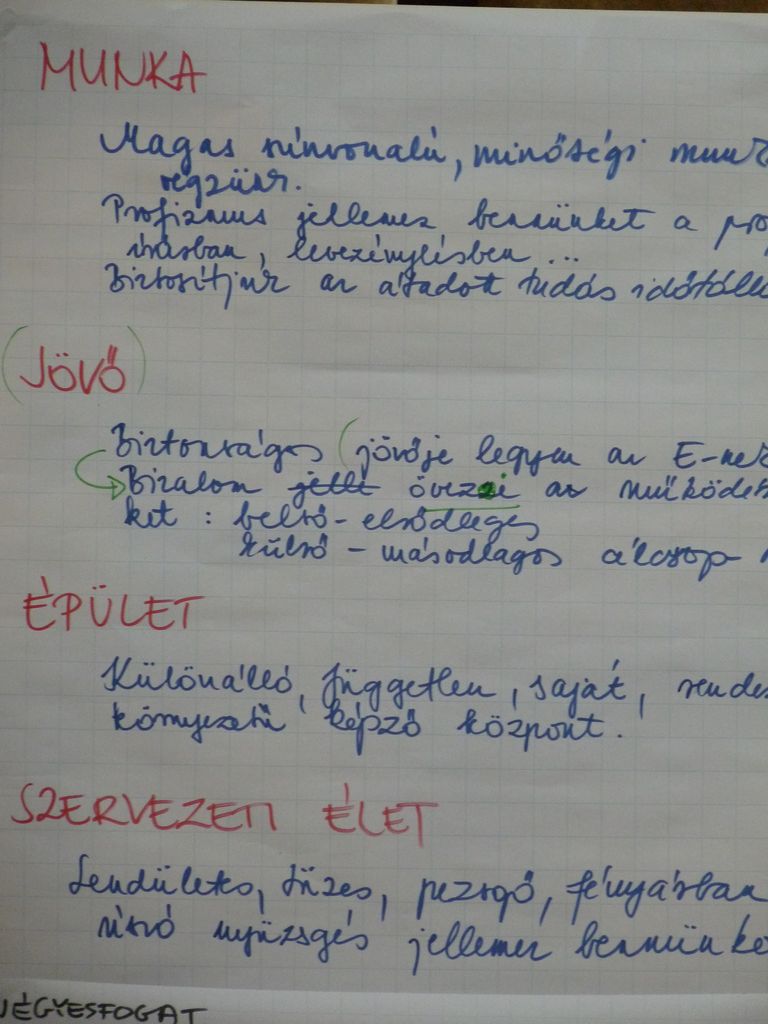 MUNKA
Magas színvonalú, minőségi munk
végzünk.
Profizmus jellemez bennünket a pro
írásban, levezénylésben ...
Biztosítjuk az átadott tudás időtálló
(JÖVŐ)
Biztonságos (jövője legyen az E-net
Bizalom jelle övezi az működés
ket : belső - elsődleges
külső - másodlagos álcsop
ÉPÜLET
Különálló, független, saját, rendes
környezetű képző központ.
SZERVEZETI ÉLET
Lendületes, tüzes, pezsgő, fényárban
úszó nyüzsgés jellemez bennünke
NÉGYESFOGAT